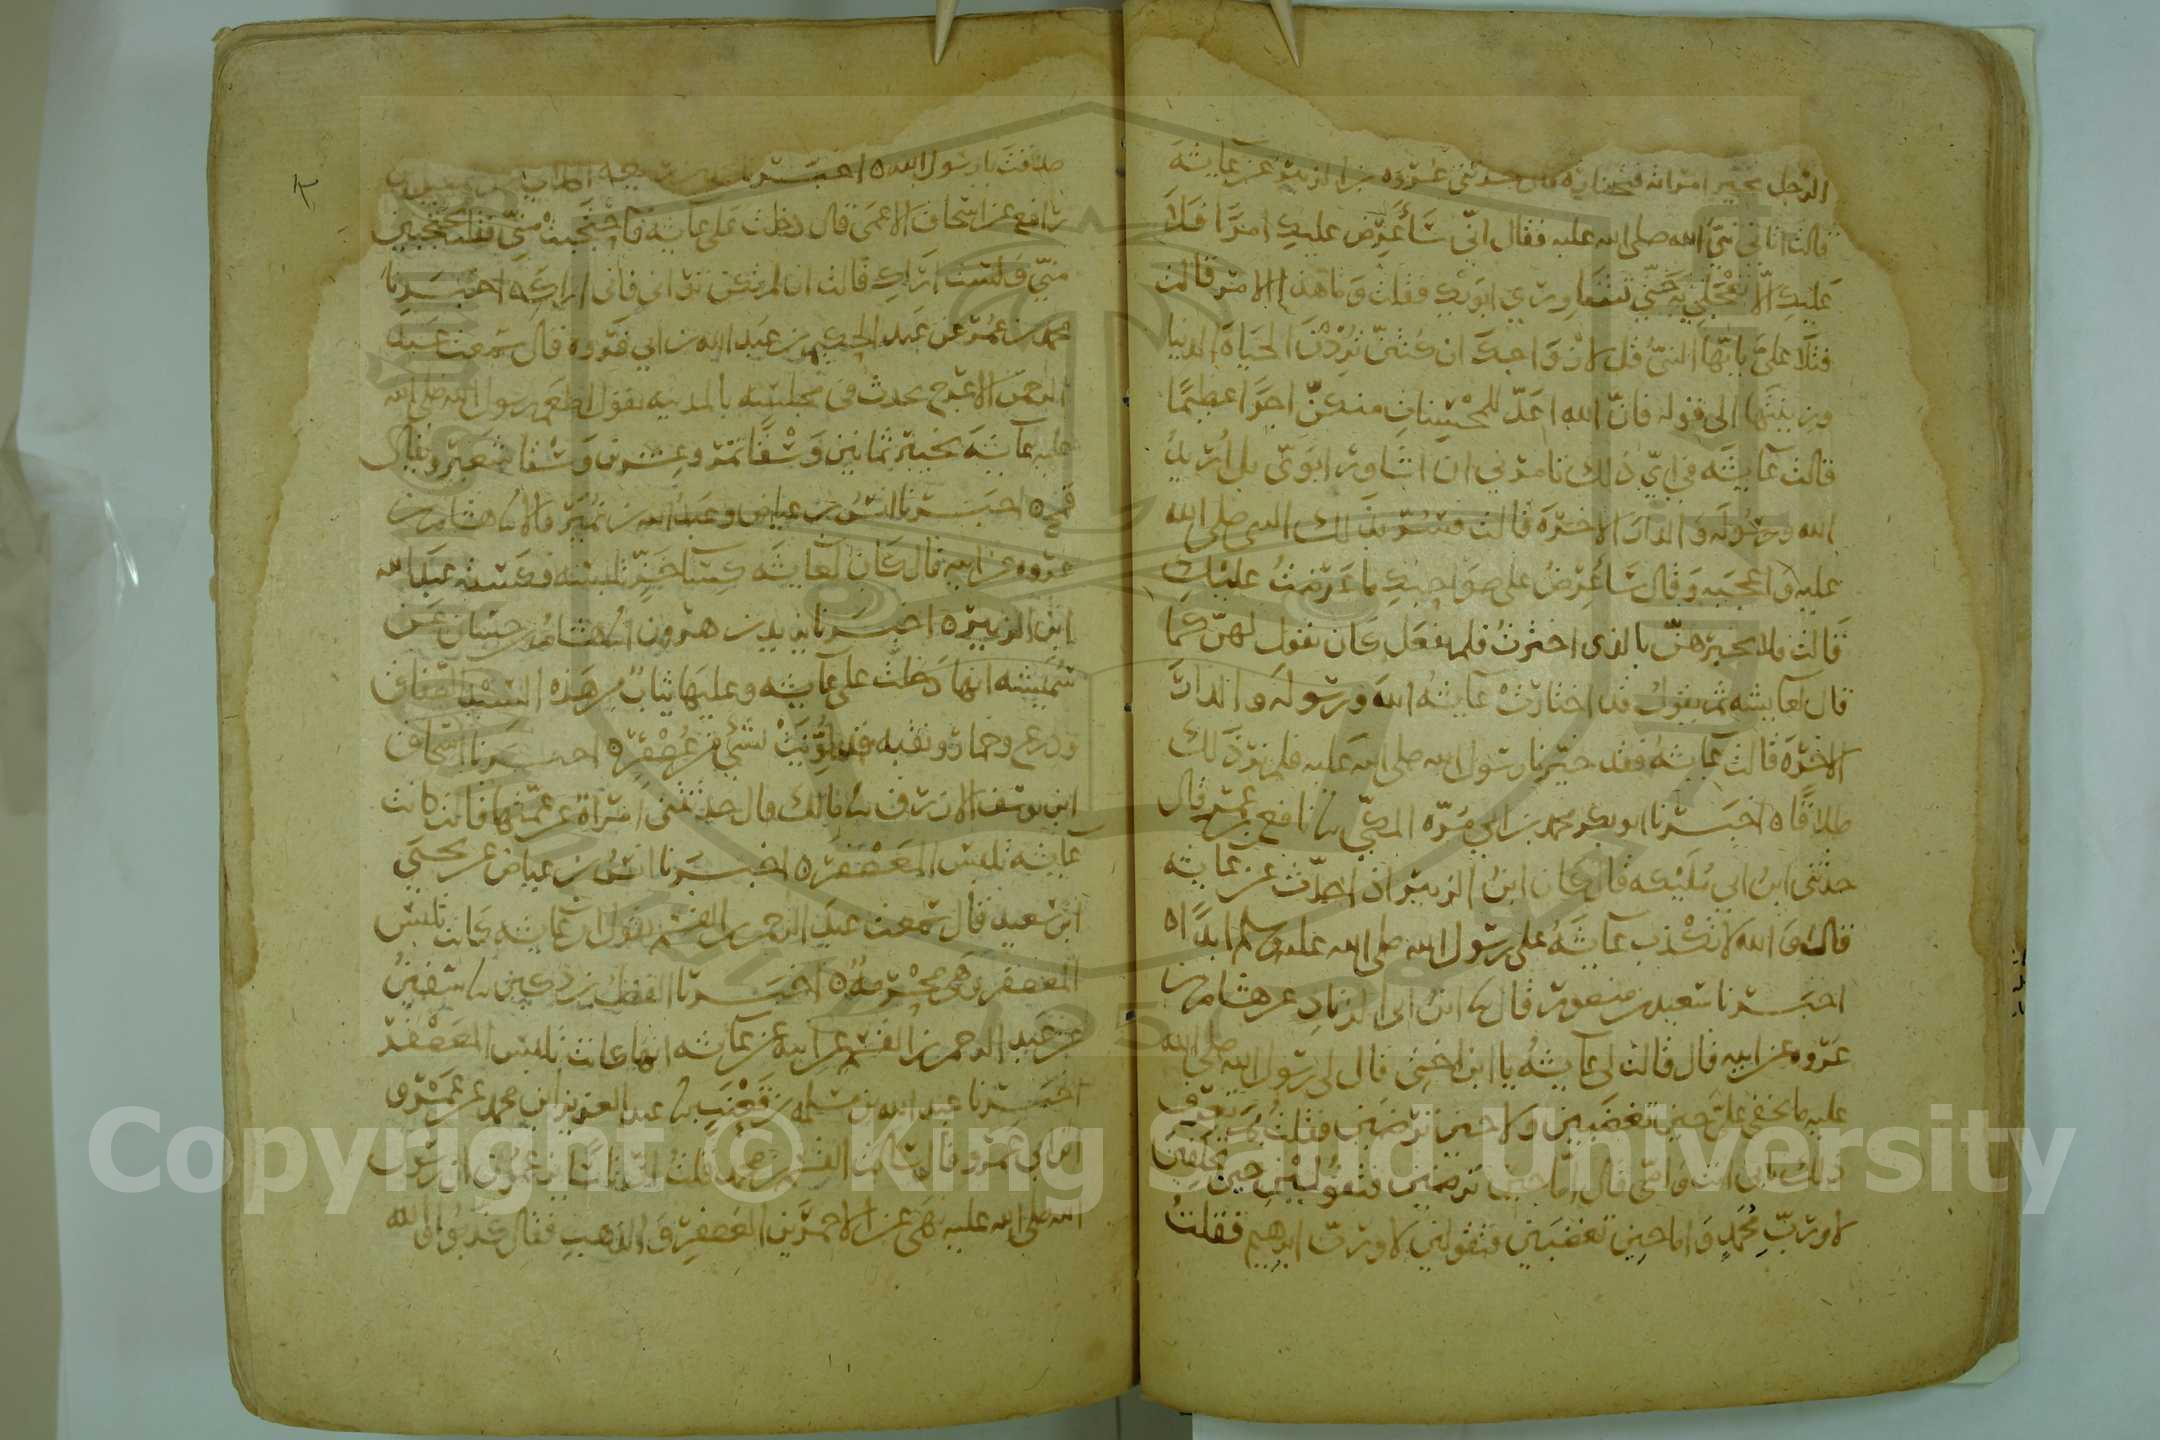 الرجل يخير امراته فتختاره قال حدثني عروة بن الزبير عن عايشة
قالت اتاني نبي الله صلى الله عليه فقال اني سأعرض عليك امرا فلا
عليك الا تعجلي به حتى تشاوري ابويك فقلت وما هذا الامر قالت
فتلا علي يا ايها النبي قل لازواجك ان كنتن تردن الحياة الدنيا
وزينتها الى قوله فان الله اعد للمحسنات منكن اجرا عظيما
قالت عايشة في اي ذلك تامرني ان اشاور ابوي بل اريد
الله ورسوله والدار الاخرة قالت فسر بذلك النبي صلى الله
عليه واعجبه وقال سأعرض على صواحبك ما عرضت عليك
قالت فلا تخبرهن بالذي اخترت فلم يفعل كان يقول لهن كما
قال لعايشة ثم يقول قد اختارت عايشة الله ورسوله والدار
الاخرة قالت عايشة فقد خيرنا رسول الله صلى الله عليه فلم نر ذلك
طلاقا ه اخبرنا ابو بكر محمد بن ابي مرة المكي نا نافع بن عمر قال
حدثني ابن ابي مليكة قال كان ابن الزبير اذا حدث عن عايشة
قال والله لا تكذب عايشة على رسول الله صلى الله عليه وسلم ابدا ه
اخبرنا سعيد بن منصور قال نا ابن ابي الزناد عن هشام بن
عروة عن ابيه قال قالت لي عايشة يا ابن اختي قال لي رسول الله صلى الله
عليه ما يخفى علي حين تغضبين ولا حين ترضين فقلت بم تعرف
ذلك بابي انت وامي قال اما حين ترضين فتقولين حين تحلفين
لا ورب محمد واما حين تغضبين فتقولين لا ورب ابرهيم فقلت
صدقت يا رسول الله ه اخبرنا
رافع عن اسحاق الاعمى قال دخلت على عايشة فاحتجبت مني فقلت تحتجبين
مني ولست اراك قالت ان لم تكن تراني فاني اراك ه اخبرنا
محمد بن عمر عن عبد الحكيم بن عبد الله بن ابي فروة قال سمعت عبد
الرحمن الاعرج يحدث في مجلسه بالمدينة يقول اطعم رسول الله صلى الله
عليه عايشة بخيبر ثمانين وسقا تمر وعشرين وسقا شعير ويقال
قمح ه اخبرنا انس بن عياض وعبد الله بن نمير قالا نا هشام بن
عروة عن ابيه قال كان لعايشة كسا خز تلبسه فكسته عبد الله
ابن الزبير ه اخبرنا يزيد بن هرون انا هشام بن حسان عن
شميسة انها دخلت على عايشة وعليها ثياب من هذه السيد الصفاق
ودرع وخمار ونقبة قد لونت بشي من عصفر ه اخبرنا اسحاق
ابن يوسف الازرق نا مالك قال حدثتني امراة عن عمتها قالت كانت
عايشة تلبس المعصفر ه اخبرنا انس بن عياض عن يحيى
ابن سعيد قال سمعت عبد الرحمن بن القسم يقول ان عايشة كانت تلبس
المعصفر وهي محرمة ه اخبرنا الفضل بن دكين نا سفين
عن عبد الرحمن بن القسم عن ابيه عن عايشة انها كانت تلبس المعصفر
اخبرنا عبد الله بن مسلمة بن قعنب نا عبد العزيز ابن محمد عن عمرو
ابن ابي عمرو قال سالت القسم بن محمد قلت ان ناسا يزعمون ان رسول
الله صلى الله عليه نهى عن الاحمرين العصفر والذهب فقال كذبوا والله
Copyright © King Saud University